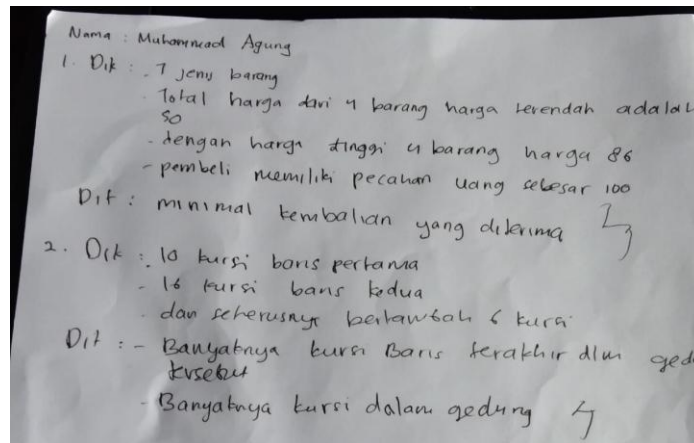 Nama : Muhammad Agung
1. Dik : - 7 jenis barang
- Total harga dari 4 barang harga terendah adalah
50
- dengan harga tinggi 4 barang harga 86
- pembeli memiliki pecahan uang sebesar 100
Dit : minimal kembalian yang diterima
2. Dik : - 10 kursi baris pertama
- 16 kursi baris kedua
- dan seterusnya bertambah 6 kursi
Dit : - Banyaknya kursi Baris terakhir dlm ged
tersebut
- Banyaknya kursi dalam gedung